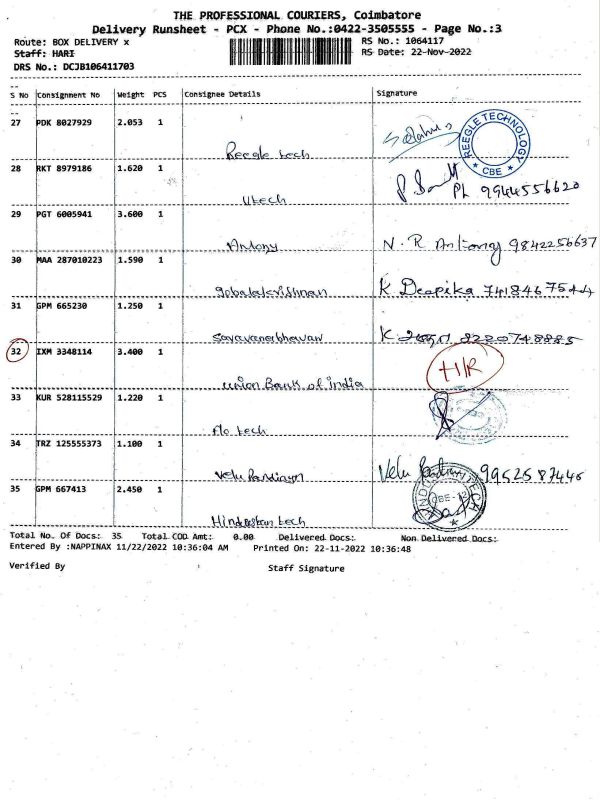 THE PROFESSIONAL COURIERS, Coimbatore
Delivery Runsheet - PCX - Phone No.:0422-3505555 - Page No.:3
Route: BOX DELIVERY x RS No.: 1064117
Staff: HARI RS Date: 22-Nov-2022
DRS No.: DCJB106411703
S No Consignment No Weight PCS Consignee Details Signature
27 PDK 8027929 2.053 1
Reegle tech
REEGLE TECHNOLOGY
★ CBE ★
28 RKT 8979186 1.620 1
Utech
Ph 9944556620
29 PGT 6005941 3.600 1
Antony N. R Antony 9842256637
30 MAA 287010223 1.590 1
gobalakrishnan K Deepika 7418467544
31 GPM 665230 1.250 1
saravanabhavan K 8220748885
32 IXM 3348114 3.400 1
union Bank of india H/R
33 KUR 528115529 1.220 1
flo tech
34 TRZ 125555373 1.100 1
Velu Pandiyan Velu 9952587446
35 GPM 667413 2.450 1
Hindustan tech
Total No. Of Docs: 35 Total COD Amt: 0.00 Delivered Docs: Non Delivered Docs:
Entered By :NAPPINAX 11/22/2022 10:36:04 AM Printed On: 22-11-2022 10:36:48
Verified By Staff Signature